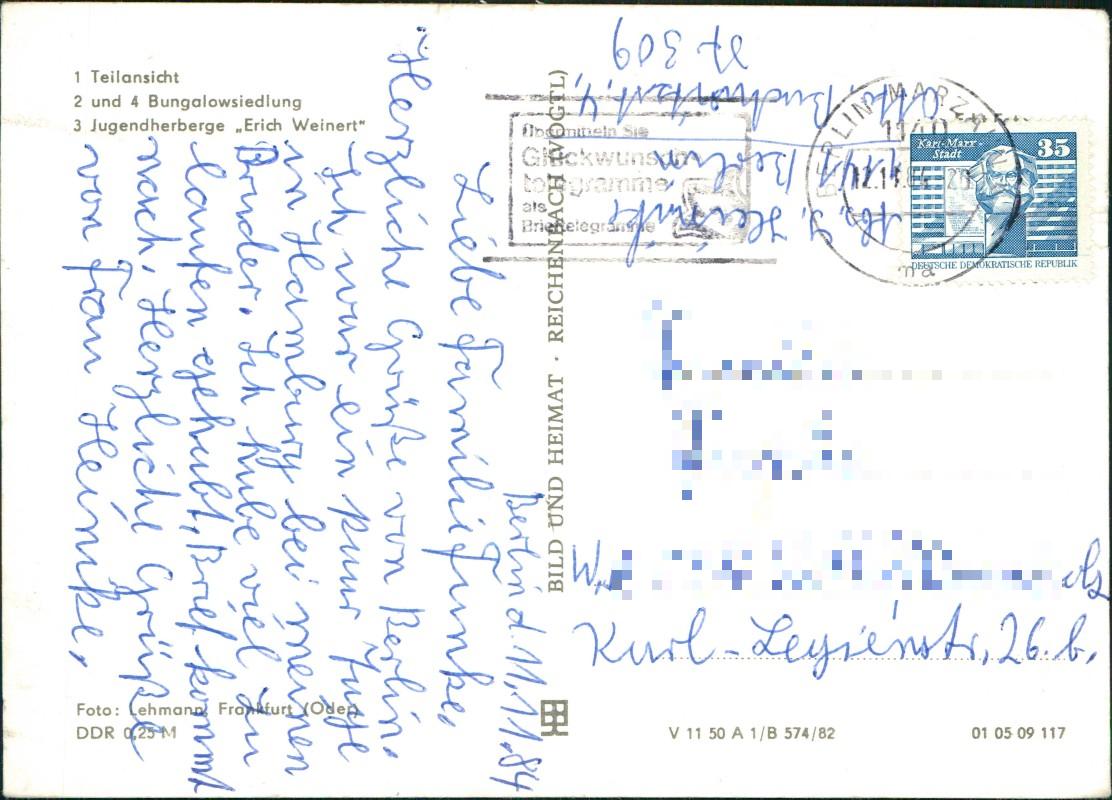 1 Teilansicht
2 und 4 Bungalowsiedlung
3 Jugendherberge „Erich Weinert"
Berlin d. 11.11.84
Liebe Familie Funke,
Herzliche Grüße von Berlin.
Ich war ein paar Tage
in Hamburg bei meinen
Bruder. Ich habe viel zu
laufen gehabt. Brief kommt
nach. Herzliche Grüße
von Frau Heinike.
Foto: Lehmann, Frankfurt (Oder)
DDR 0,25 M
BILD UND HEIMAT · REICHENBACH (VOGTL)
Übermitteln Sie
Glückwunsch-
telegramme
als
Brieftelegramme
BERLIN MARZAHN
1140
12.11.84
ma
Karl-Marx-
Stadt
35
DEUTSCHE DEMOKRATISCHE REPUBLIK
Abs. J. Heinike
1141 Berlin
Otto Buchwitzstr. 4,
309
Karl-Legienstr. 26.b.
V 11 50 A 1/B 574/82
01 05 09 117